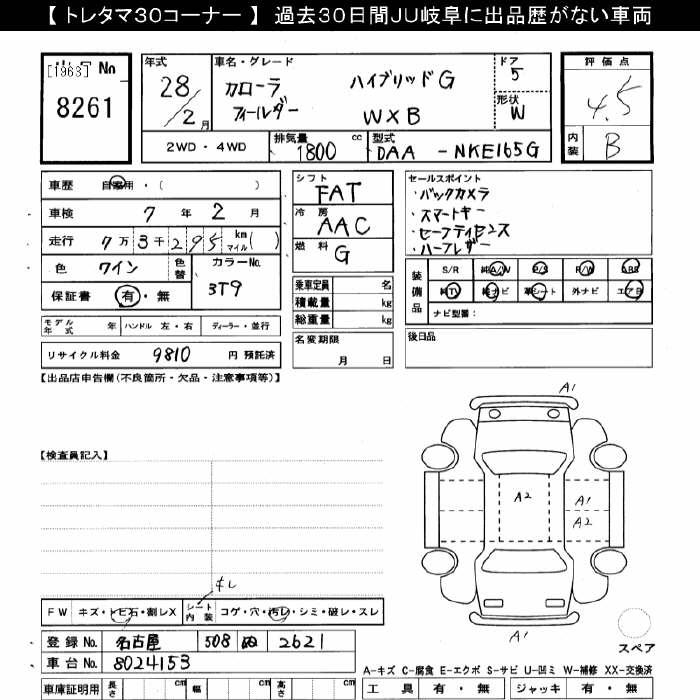 【 トレタマ３０コーナー 】 過去３０日間ＪＵ岐阜に出品歴がない車両
[1963] No
8261
年式
28/2月
車名・グレード
カローラ
フィールダー
ハイブリッドG
W×B
ドア
5
形状
W
評価点
4.5
内装
B
2WD・4WD
排気量
1800 cc
型式
DAA - NKE165G
車歴 自家用・( )
車検 7 年 2 月
走行 7万3千295 km マイル( )
色 ワイン
色替
カラーNo.
3T9
保証書 有・無
シフト
FAT
冷房
AAC
燃料
G
セールスポイント
・バックカメラ
・スマートキー
・セーフティセンス
・ハーフレザー
装備品
S/R 純A/W P/S P/W ABS
純TV 純ナビ 革シート 外ナビ エアB
ナビ型番：
乗車定員 名
積載量 kg
総重量 kg
モデル年式 年 ハンドル 左・右 ディーラー・並行
リサイクル料金 9810 円 預託済
名変期限
月 日
後日品
【出品店申告欄(不良箇所・欠品・注意事項等)】
【検査員記入】
A1
A2
A1
A2
A1
キレ
FW キズ・トビ石・割レX
シート内装 コゲ・穴・汚レ・シミ・破レ・スレ
スペア
登録 No. 名古屋 508 ぬ 2621
車台 No. 8024153
A-キズ C-腐食 E-エクボ S-サビ U-凹ミ W-補修 XX-交換済
車庫証明用 長さ cm 幅 cm 高さ cm
工具 有・無 ジャッキ 有・無